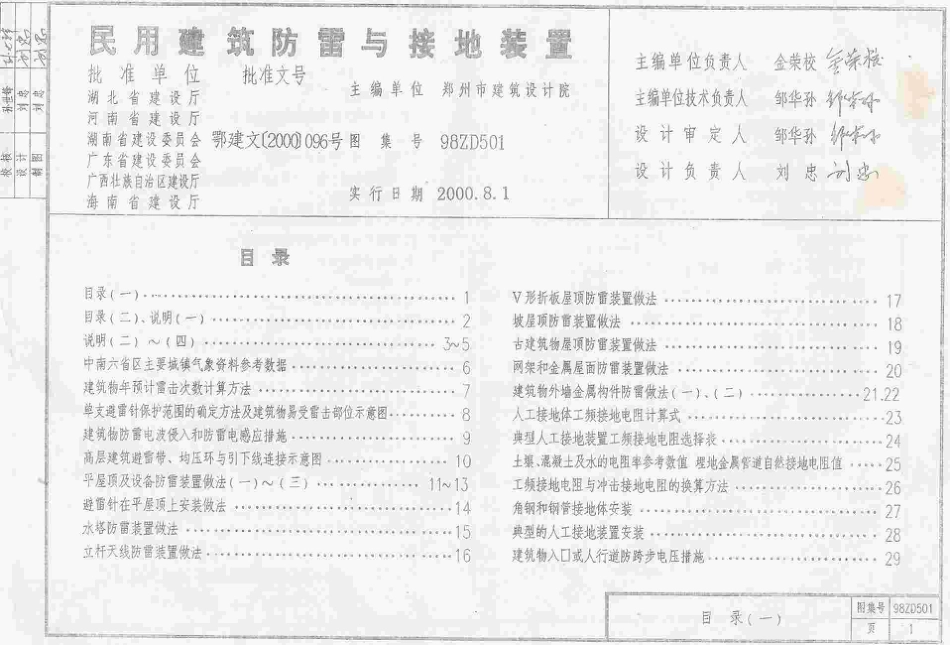 民用建筑防雷与接地装置
批准单位 批准文号
湖北省建设厅
河南省建设厅
湖南省建设委员会 鄂建文[2000]096号
广东省建设委员会
广西壮族自治区建设厅
海南省建设厅
主编单位 郑州市建筑设计院
图集号 98ZD501
实行日期 2000.8.1
主编单位负责人 金荣校
主编单位技术负责人 邹华孙
设计审定人 邹华孙
设计负责人 刘忠
校核
设计 刘忠
制图 刘忠
目录
目录(一) 1
目录(二)、说明(一) 2
说明(二)~(四) 3~5
中南六省区主要城镇气象资料参考数据 6
建筑物年预计雷击次数计算方法 7
单支避雷针保护范围的确定方法及建筑物易受雷击部位示意图 8
建筑物防雷电波侵入和防雷电感应措施 9
高层建筑避雷带、均压环与引下线连接示意图 10
平屋顶及设备防雷装置做法(一)~(三) 11~13
避雷针在平屋顶上安装做法 14
水塔防雷装置做法 15
立杆天线防雷装置做法 16
V形折板屋顶防雷装置做法 17
坡屋顶防雷装置做法 18
古建筑物屋顶防雷装置做法 19
网架和金属屋面防雷装置做法 20
建筑物外墙金属构件防雷做法(一)、(二) 21.22
人工接地体工频接地电阻计算式 23
典型人工接地装置工频接地电阻选择表 24
土壤、混凝土及水的电阻率参考数值 埋地金属管道自然接地电阻值 25
工频接地电阻与冲击接地电阻的换算方法 26
角钢和钢管接地体安装 27
典型的人工接地装置安装 28
建筑物入口或人行道防跨步电压措施 29
目录(一)
图集号 98ZD501
页 1